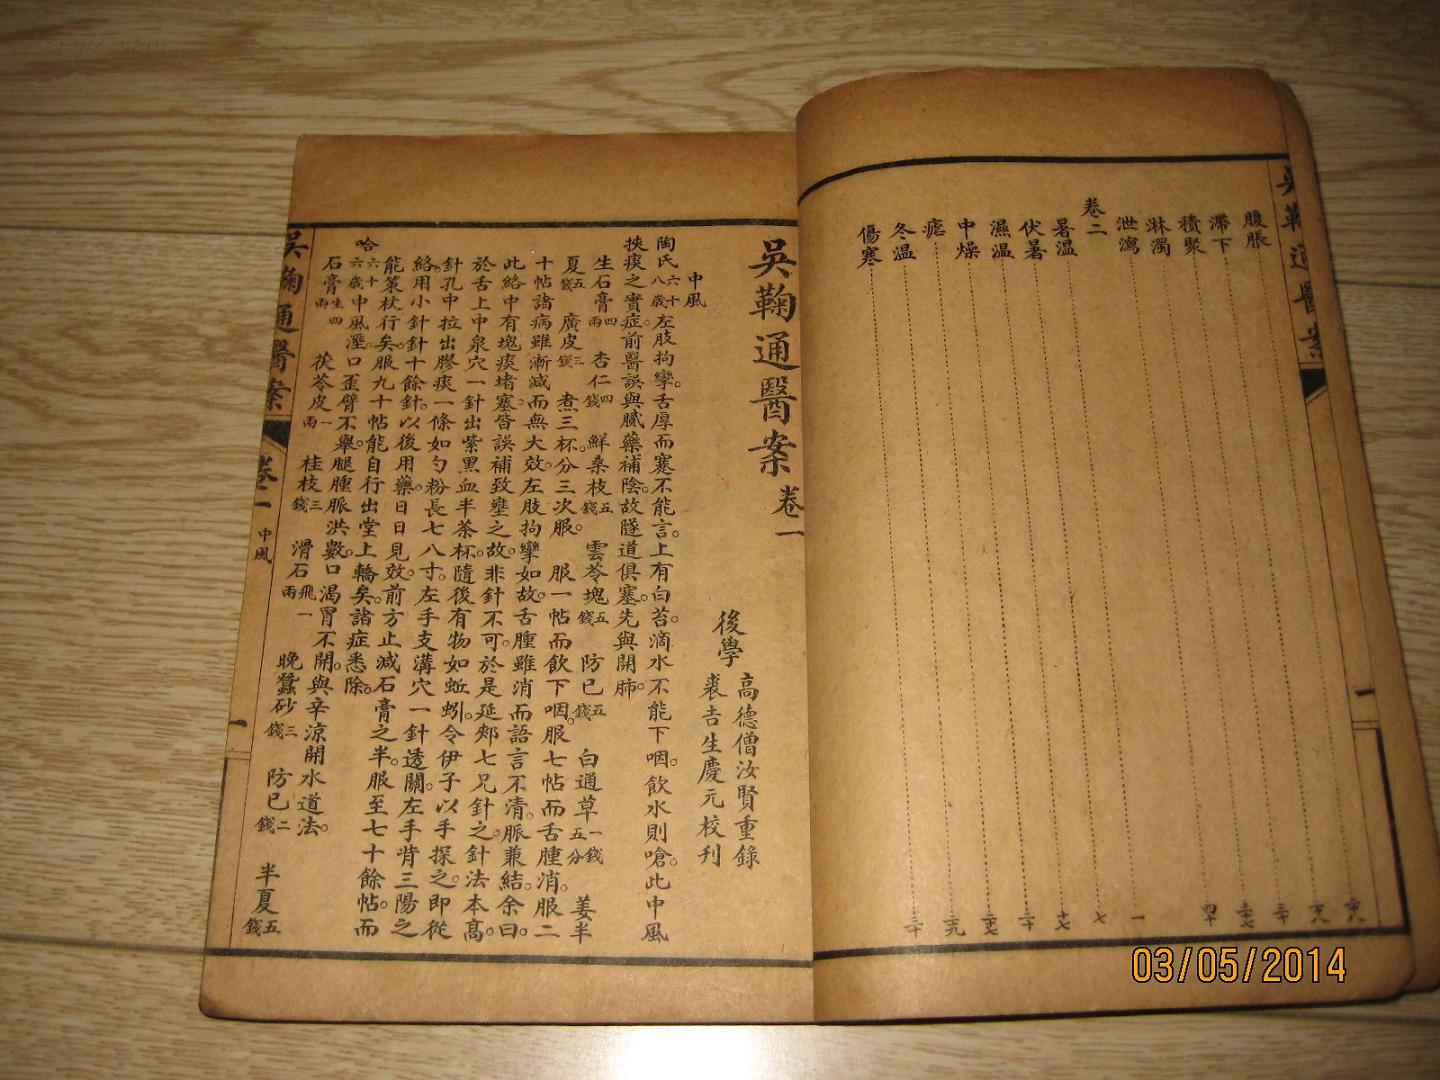 吳鞠通醫案
一
腹脹
滯下
積聚
淋濁
泄瀉
卷二
暑溫
伏暑
濕溫
中燥
瘧
冬溫
傷寒
吳鞠通醫案卷一
後學
高德僧汝賢重錄
裘吉生慶元校刋
中風
陶氏六十八歲左肢拘攣。舌厚而蹇不能言。上有白苔。滴水不能下咽。飲水則嗆。此中風
挾痰之實症。前醫誤與膩藥補陰。故隧道俱塞。先與開肺。
生石膏四兩 杏仁四錢 鮮桑枝五錢 雲苓塊五錢 防已五錢 白通草一錢五分 姜半
夏五錢 廣皮三錢 煮三杯。分三次服。 服一帖而飲下咽。服七帖而舌腫消。服二
十帖諸病雖漸減而無大效。左肢拘攣如故。舌腫雖消而語言不清。脈兼結。余曰。
此絡中有塊痰堵塞皆誤補致壅之故。非針不可。於是延郯七兄針之。針法本高。
於舌上中泉穴一針出紫黑血半茶杯。隨後有物如蚯蚓。令伊子以手探之。即從
針孔中拉出膠痰一條如勺粉長七八寸。左手支溝穴一針透關。左手背三陽之
絡。用小針針十餘針。以後用藥日日見效。前方止減石膏之半。服至七十餘帖。而
能策杖行矣。服九十帖能自行出堂上轎矣。諸症悉除。
哈六十六歲中風溼。口歪臂不舉。腿腫脈洪數。口渴胃不開。與辛涼開水道法。
石膏生四兩 茯苓皮一兩 桂枝三錢 滑石飛一兩 晚蠶砂三錢 防已二錢 半夏五錢
吳鞠通醫案
卷一
中風
一
03/05/2014